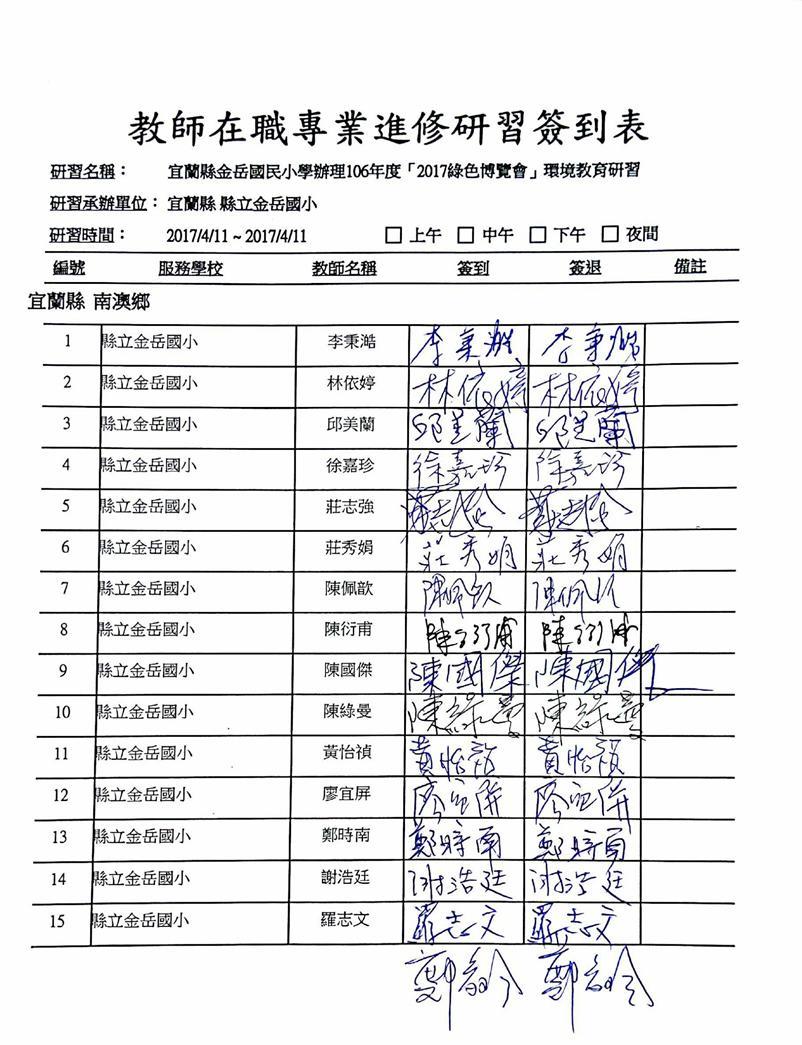 教師在職專業進修研習簽到表
研習名稱： 宜蘭縣金岳國民小學辦理106年度「2017綠色博覽會」環境教育研習
研習承辦單位： 宜蘭縣 縣立金岳國小
研習時間： 2017/4/11 ~ 2017/4/11 □ 上午 □ 中午 □ 下午 □ 夜間
編號 服務學校 教師名稱 簽到 簽退 備註
宜蘭縣 南澳鄉
1 縣立金岳國小 李秉澔 李秉澔 李秉澔
2 縣立金岳國小 林依婷 林依婷 林依婷
3 縣立金岳國小 邱美蘭 邱美蘭 邱美蘭
4 縣立金岳國小 徐嘉珍 徐嘉珍 徐嘉珍
5 縣立金岳國小 莊志強 莊志強 莊志強
6 縣立金岳國小 莊秀娟 莊秀娟 莊秀娟
7 縣立金岳國小 陳佩歆 陳佩歆 陳佩歆
8 縣立金岳國小 陳衍甫 陳衍甫 陳衍甫
9 縣立金岳國小 陳國傑 陳國傑 陳國傑
10 縣立金岳國小 陳綠曼 陳綠曼 陳綠曼
11 縣立金岳國小 黃怡禎 黃怡禎 黃怡禎
12 縣立金岳國小 廖宜屏 廖宜屏 廖宜屏
13 縣立金岳國小 鄭時南 鄭時南 鄭時南
14 縣立金岳國小 謝浩廷 謝浩廷 謝浩廷
15 縣立金岳國小 羅志文 羅志文 羅志文